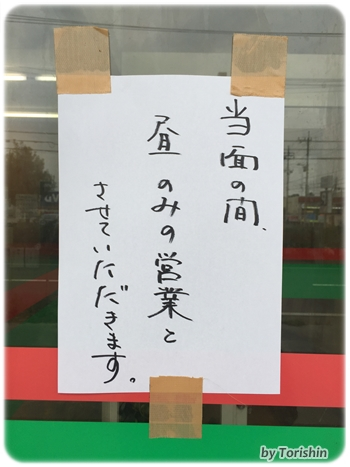 当面の間、
昼のみの営業と
させていただきます。
by Torishin